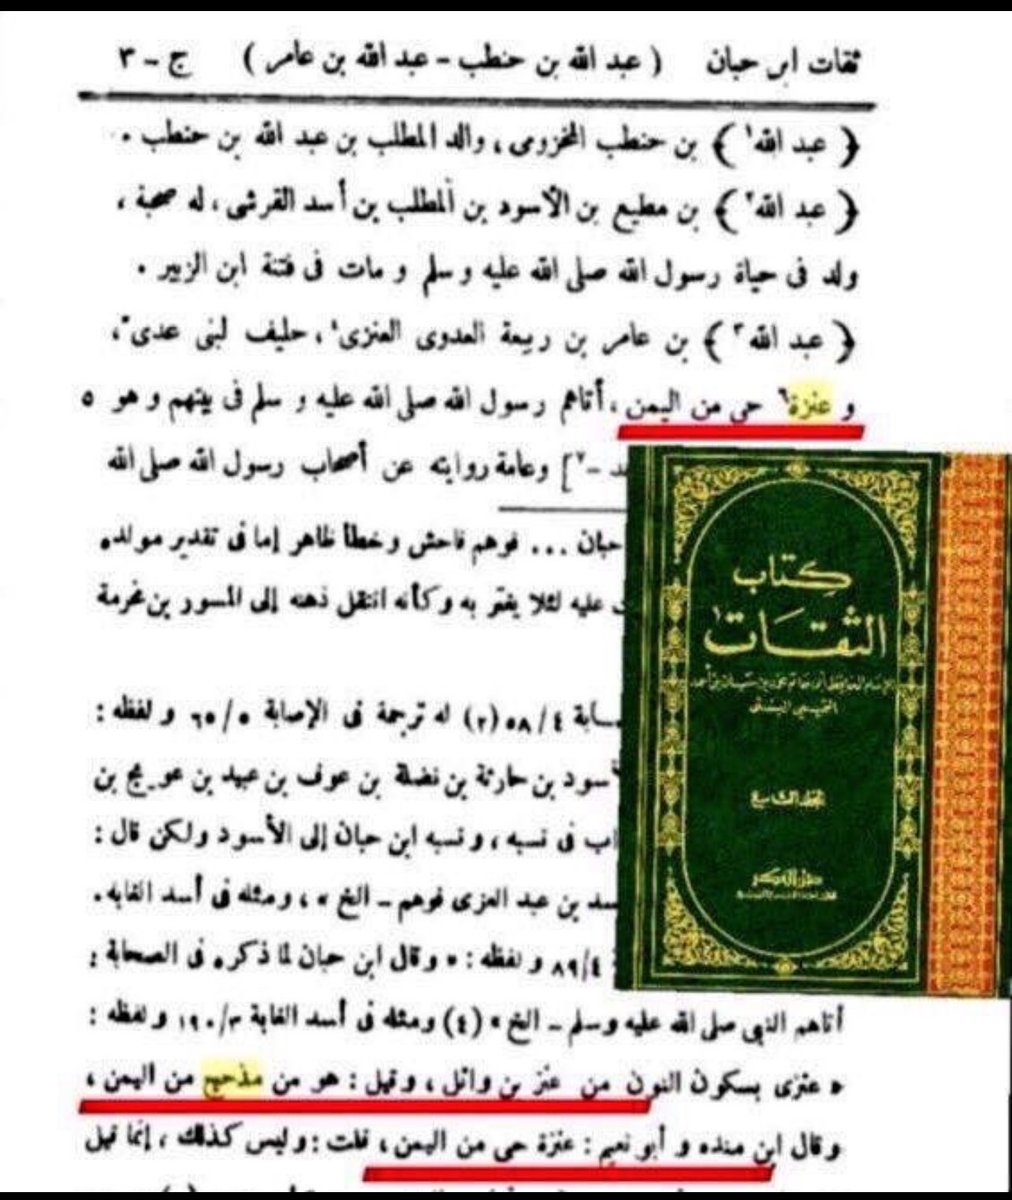 ثقات ابن حبان ( عبد الله بن حنطب - عبد الله بن عامر ) ج - ٣
﴿ عبد الله١ ﴾ بن حنطب المخزومى ، والد المطلب بن عبد الله بن حنطب .
﴿ عبد الله٢ ﴾ بن مطيع بن الأسود بن المطلب بن أسد القرشى ، له صحبة ،
ولد فى حياة رسول الله صلى الله عليه و سلم و مات فى فتنة ابن الزبير .
﴿ عبد الله٣ ﴾ بن عامر بن ربيعة العدوى العنزى٤ ، حليف لبنى عدى٥ ،
و عنزة٦ حى من اليمن ، أتاهم رسول الله صلى الله عليه و سلم فى بيتهم و هو ٥
د -٧] وعامة روايته عن أصحاب رسول الله صلى الله
حبان ... فوهم فاحش وخطأ ظاهر إما فى تقدير مولده
عليه لئلا يغتر به وكأنه انتقل ذهنه إلى المسور بن مخرمة
صابة ٤/ ٥٨ (٢) له ترجمة فى الإصابة ٥/ ٦٥ و لفظه :
أسود بن حارثة بن نضلة بن عوف بن عبيد بن عويج بن
اب فى نسبه ، و نسبه ابن حبان إلى الأسود ولكن قال :
سد بن عبد العزى فوهم ــ الخ » ، ومثله فى أسد الغابه .
٤/ ٨٩ و لفظه : « وقال ابن حبان لما ذكره فى الصحابة :
أتاهم النبى صلى الله عليه وسلم ــ الخ » (٤) ومثله فى أسد الغابة ٣/ ١٩٠ و لفظه :
« عنزى بسكون النون من عنز بن وائل ، وقيل : هو من مذحج من اليمن ،
وقال ابن منده و أبو نعيم : عنزة حى من اليمن ، قلت : وليس كذلك ، إنما قيل
كتاب
الثقات